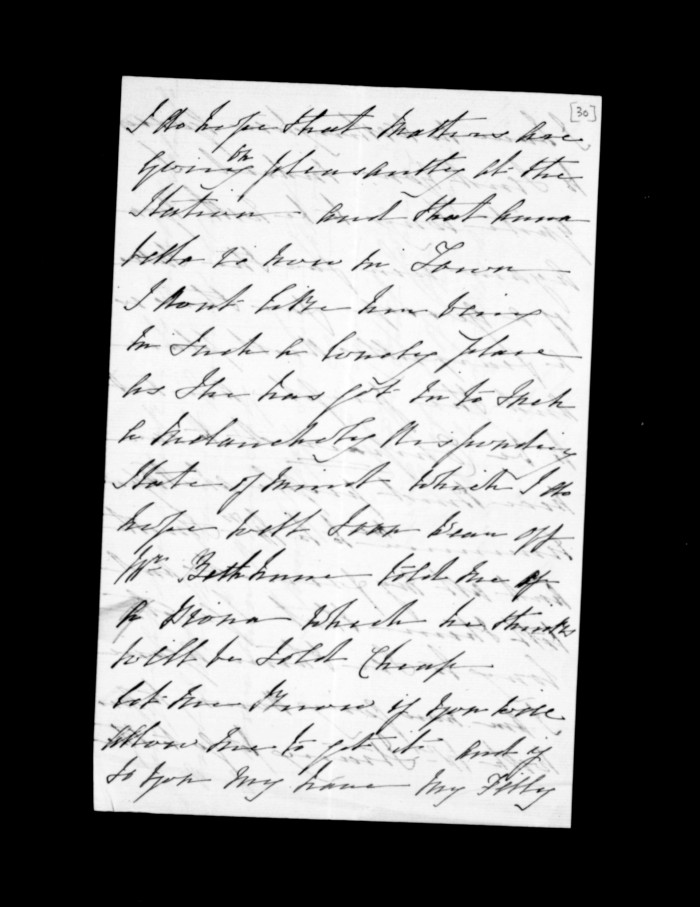 [30]
I do hope that matters are
going on pleasantly at the
Station - and that Anna
bella is now in Town
I dont like her being
in such a lonely place
as she has got in to such
a melancholy disponding
State of mind which I do
hope will soon wear off
Mr Bethhune told me of
a Piano which he thinks
will be sold Cheap
let me know if you will
allow me to get it and if
so you may have my Filly